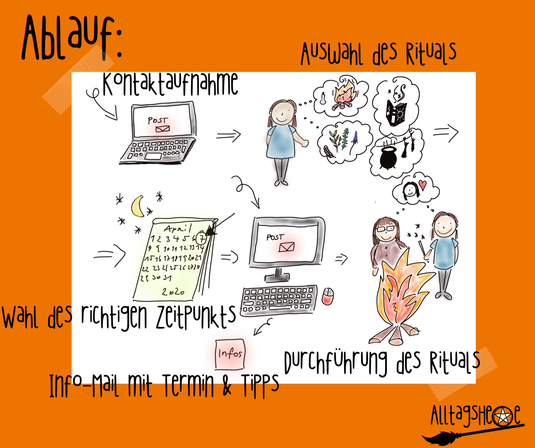 Ablauf:
Auswahl des Rituals
Kontaktaufnahme
POST
April
1 2 3 4 5 6 7
8 9 10 11 12 13 14
15 16 17 18 19 20 21
22 23 24 25 26 27 28
29 30 31
2020
POST
Wahl des richtigen Zeitpunkts
Infos
Durchführung des Rituals
Info-Mail mit Termin & Tipps
Alltagshexe